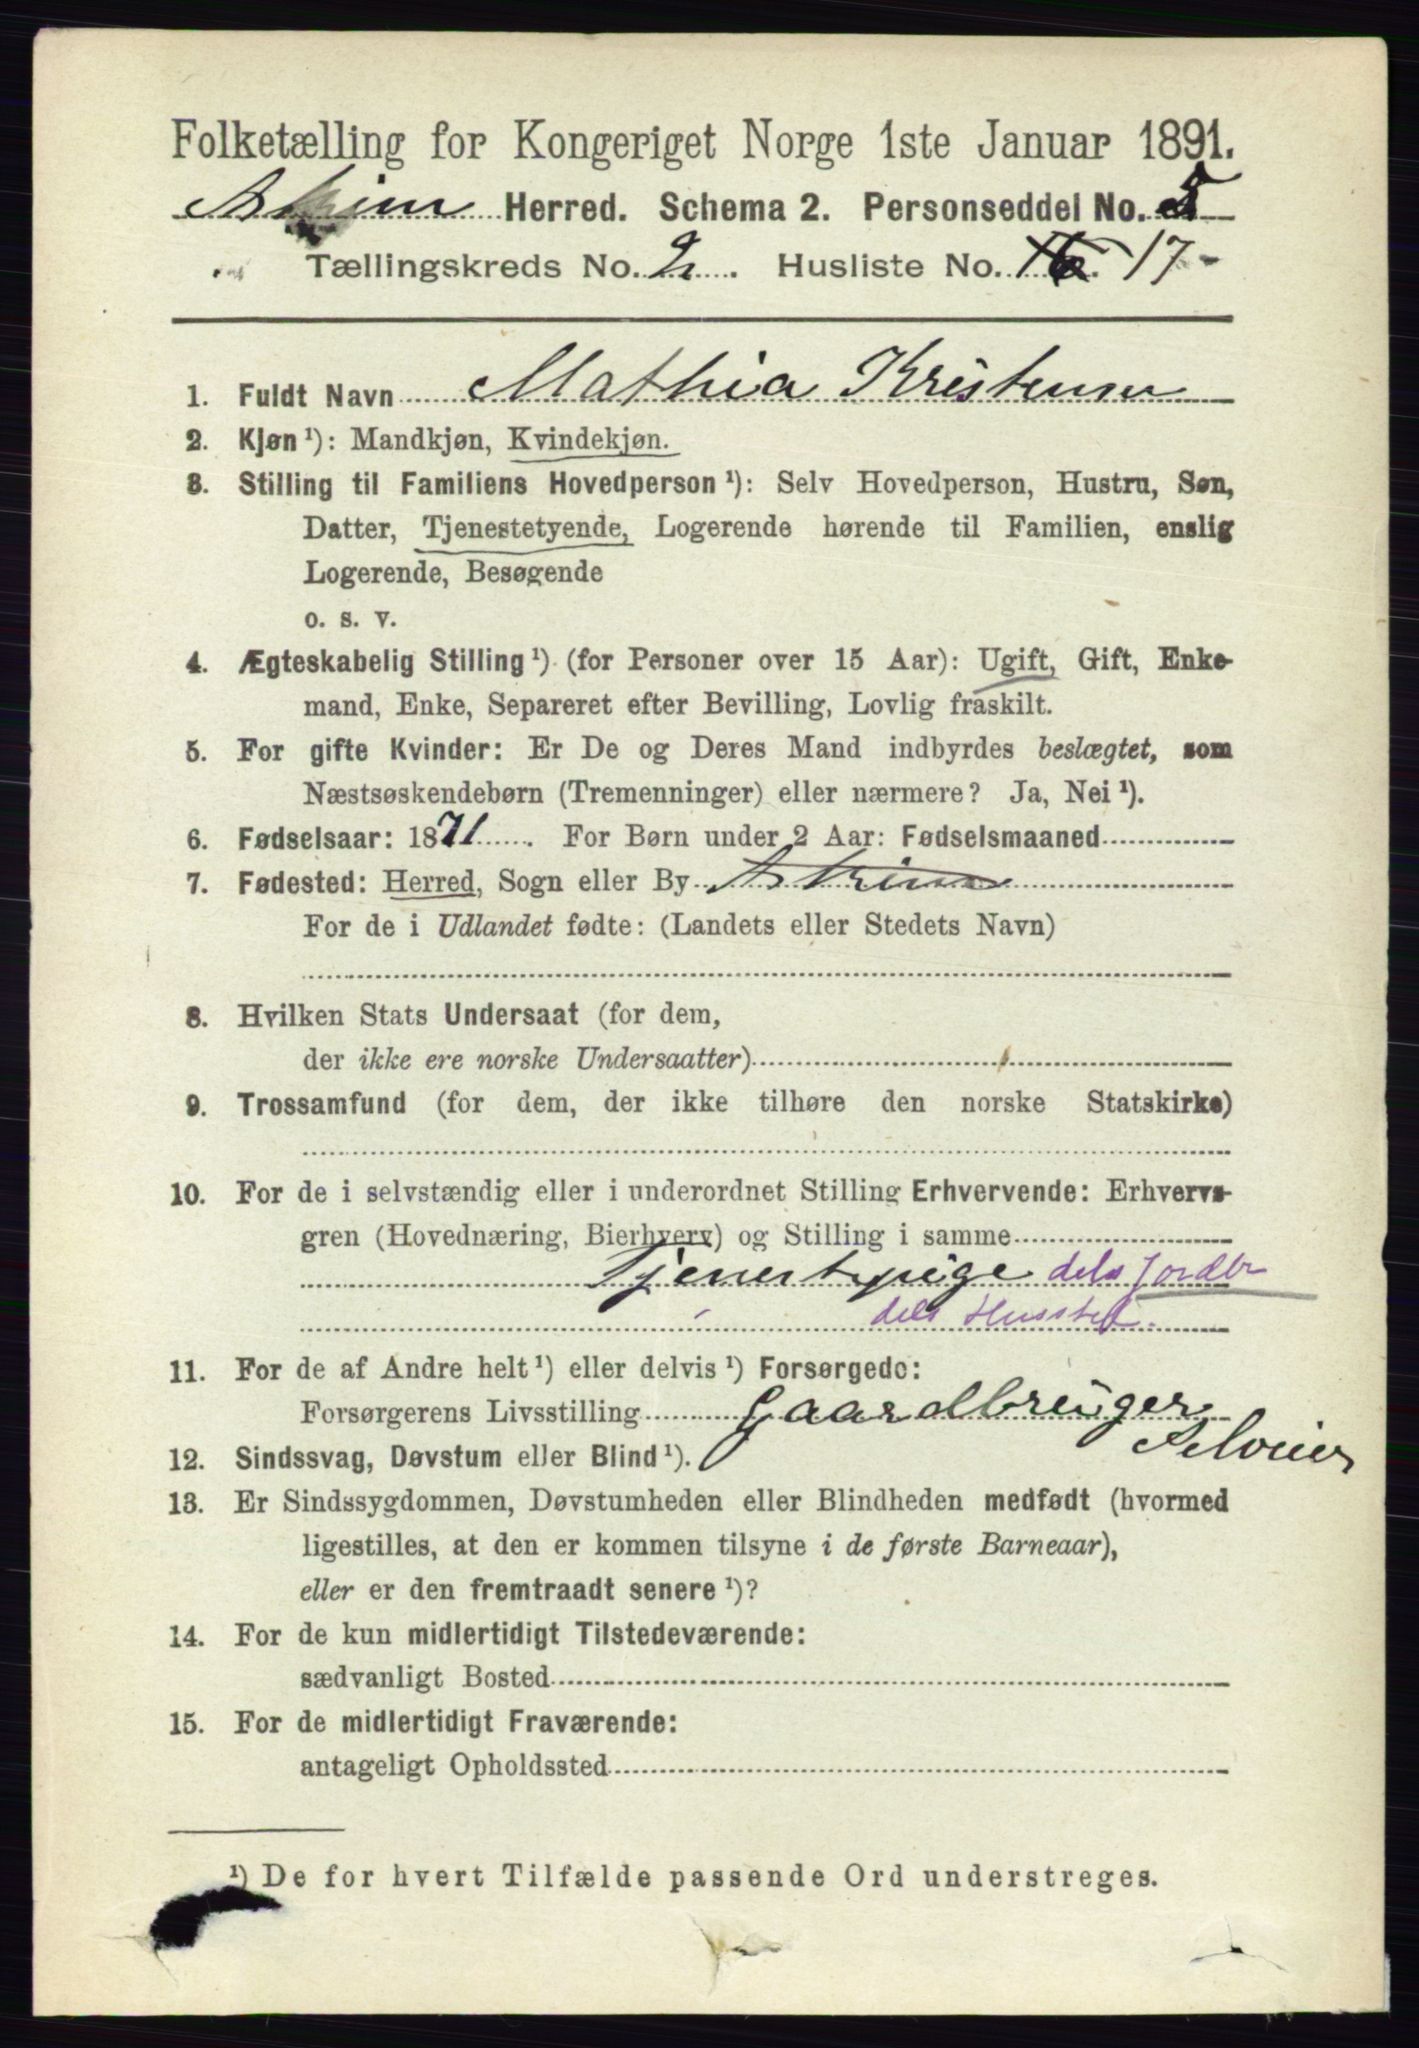 Folketælling for Kongeriget Norge 1ste Januar 1891.
Askim Herred. Schema 2. Personseddel No. 5
Tællingskreds No. 2. Husliste No. 16. 17-
1. Fuldt Navn Mathia Kristensen
2. Kjøn ¹): Mandkjøn, Kvindekjøn.
3. Stilling til Familiens Hovedperson ¹): Selv Hovedperson, Hustru, Søn,
Datter, Tjenestetyende, Logerende hørende til Familien, enslig
Logerende, Besøgende
o. s. v.
4. Ægteskabelig Stilling ¹) (for Personer over 15 Aar): Ugift, Gift, Enke-
mand, Enke, Separeret efter Bevilling, Lovlig fraskilt.
5. For gifte Kvinder: Er De og Deres Mand indbyrdes beslægtet, som
Næstsøskendebørn (Tremenninger) eller nærmere? Ja, Nei ¹).
6. Fødselsaar: 1871. For Børn under 2 Aar: Fødselsmaaned
7. Fødested: Herred, Sogn eller By Askim
For de i Udlandet fødte: (Landets eller Stedets Navn)
8. Hvilken Stats Undersaat (for dem,
der ikke ere norske Undersaatter)
9. Trossamfund (for dem, der ikke tilhøre den norske Statskirke)
10. For de i selvstændig eller i underordnet Stilling Erhvervende: Erhvervs-
gren (Hovednæring, Bierhverv) og Stilling i samme
Tjenestepige dels Jordbr
dels Husstel.
11. For de af Andre helt ¹) eller delvis ¹) Forsørgede:
Forsørgerens Livsstilling Gaardbruger
Selveier
12. Sindssvag, Døvstum eller Blind ¹).
13. Er Sindssygdommen, Døvstumheden eller Blindheden medfødt (hvormed
ligestilles, at den er kommen tilsyne i de første Barneaar),
eller er den fremtraadt senere ¹)?
14. For de kun midlertidigt Tilstedeværende:
sædvanligt Bosted
15. For de midlertidigt Fraværende:
antageligt Opholdssted
¹) De for hvert Tilfælde passende Ord understreges.